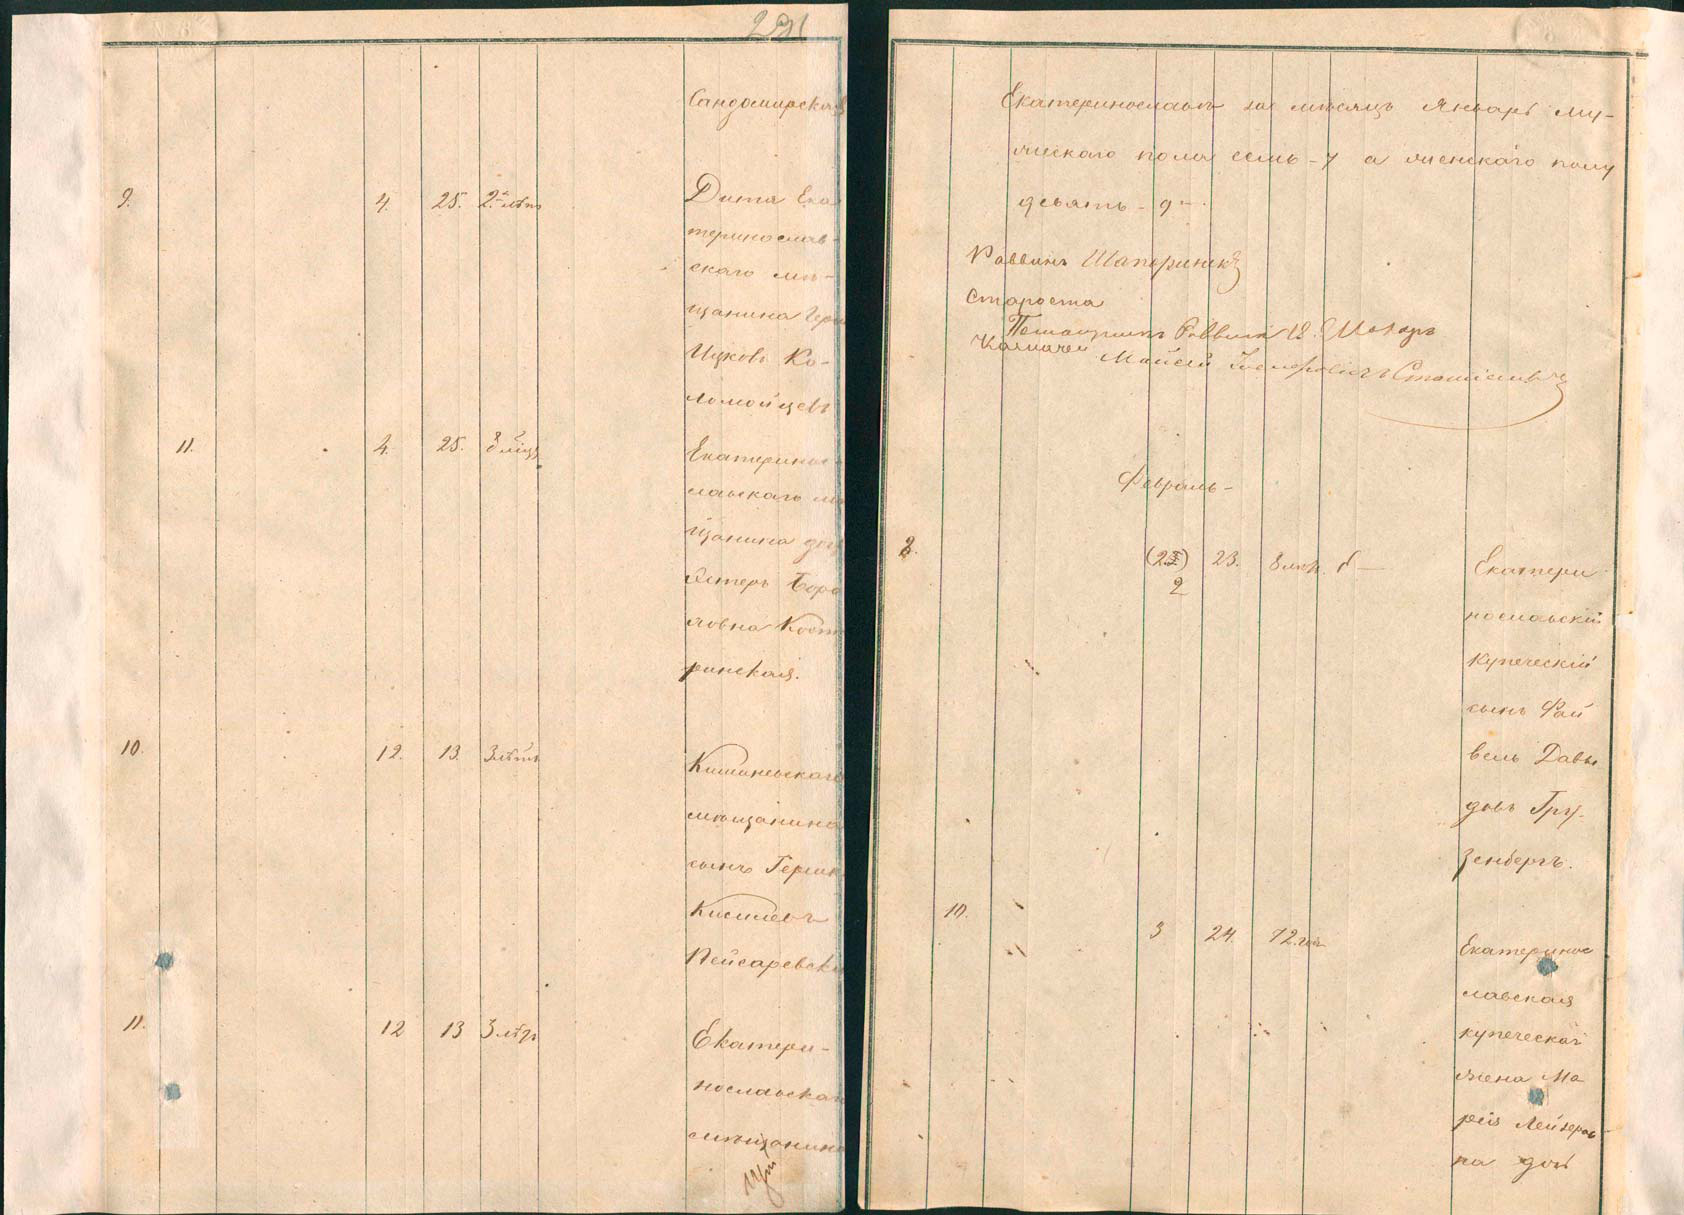 291
Сандомирская
9. 4. 25. 2. лѣт
Дита Ека
теринослав-
скаго мѣ-
щанина Герш
Ицковъ Ко-
ломойцевъ
11. 4. 25. 8 міцъ
Екатеринос-
лавскаго мѣ
щанина доч
Эстеръ Боро
ховна Кост
ринская.
10. 12. 13. 3 лѣтъ
Кишиневскаго
мѣщанина
сынъ Гершк
Киселевъ
Пейсаревск
11. 12 13 3 лѣтъ
Екатери-
нославскаго
мѣщанина
Екатеринославъ за мѣсяцъ Январь му-
жескаго пола семь - 7 а женскаго полу
девять - 9 - .
Раввинъ
Староста
Помощникъ Раввина
Казначей Мойсей
Февраль -
8. 2 23. 8 б —
Екатери
нославскій
купеческій
сынъ Фай
вель Давы
довъ Гру-
зенбергъ.
10. 3 24. 72. год
Екатеринос
лавская
купеческая
жена Ма
рія Лейзеров
на доч